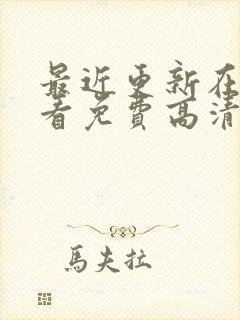 最近更新在
看免费高清
馬夫拉